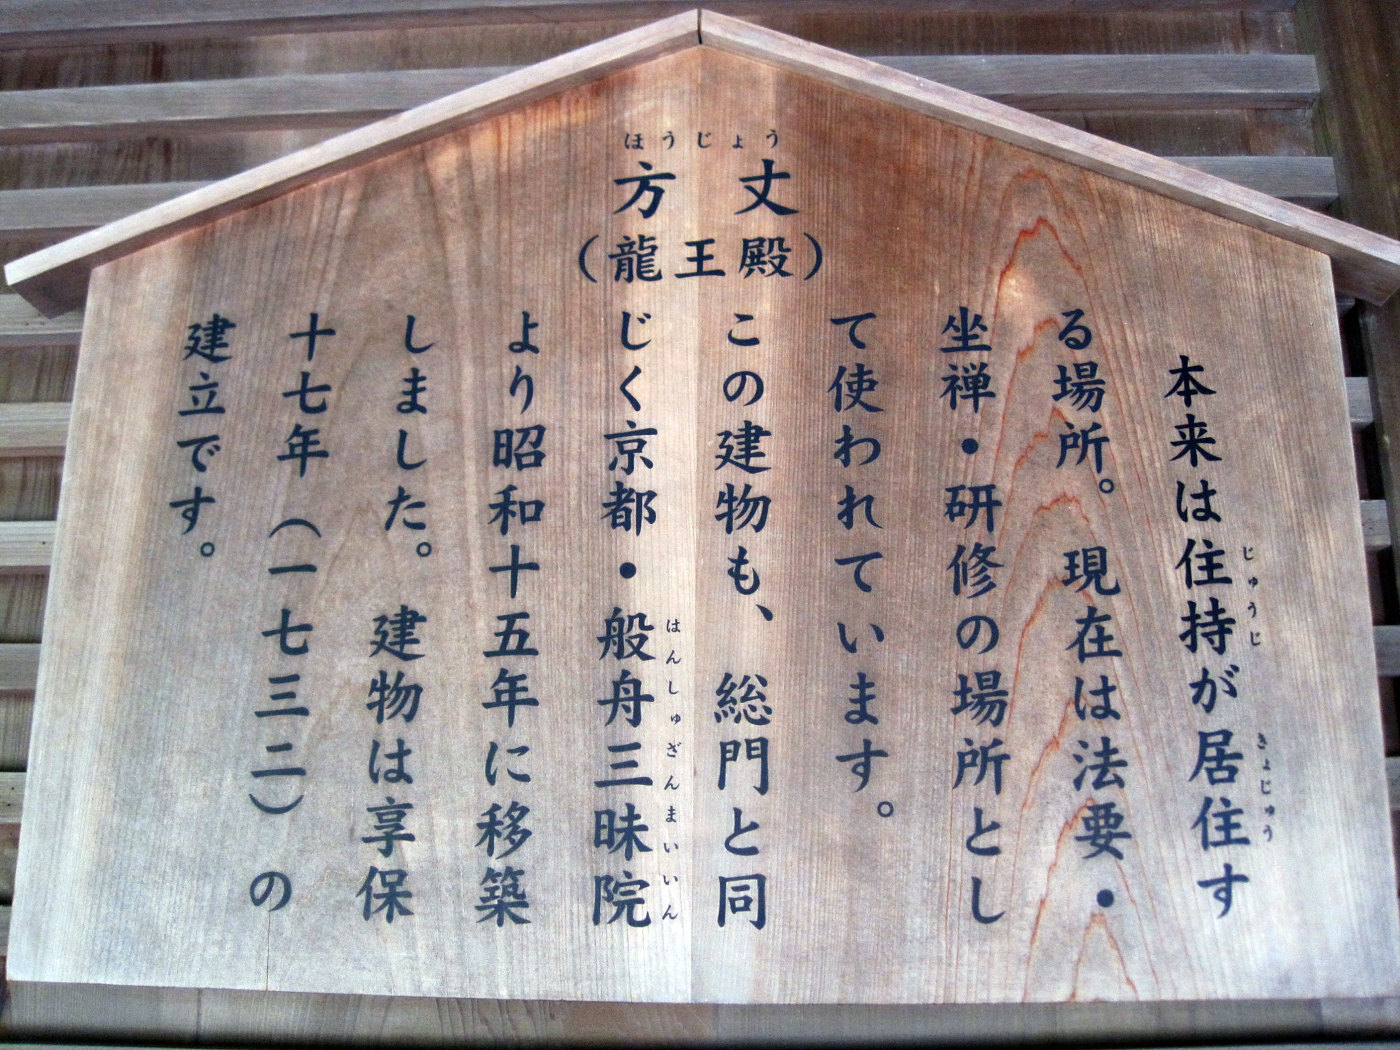 ほうじょう
方丈
(龍王殿)
本来は住持が居住す
じゅうじ
きょじゅう
る場所。現在は法要・
坐禅・研修の場所とし
て使われています。
この建物も、総門と同
じく京都・般舟三昧院
はんしゅざんまいいん
より昭和十五年に移築
しました。建物は享保
十七年(一七三二)の
建立です。